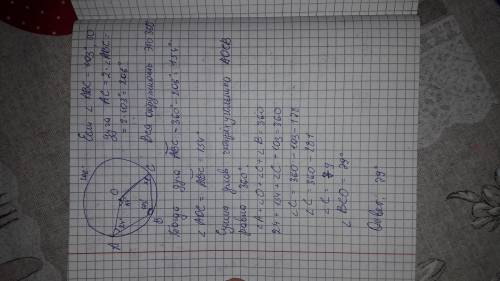 Если ∠ABC = 103°, то
дуга AC = 2·∠ABC =
= 2·103° = 206°
Вся окружность это 360°
Тогда дуга ABC = 360° - 206° = 154°
∠AOC = ABC = 154°
Сумма углов четырёхугольника AOCB
равна 360°
∠A + ∠O + ∠C + ∠B = 360
24 + 154 + ∠C + 103 = 360
∠C = 360 - 103 - 178
∠C = 360 - 281
∠C = 79
∠BCO = 79°
Ответ: 79°
A
O
B
C
24°